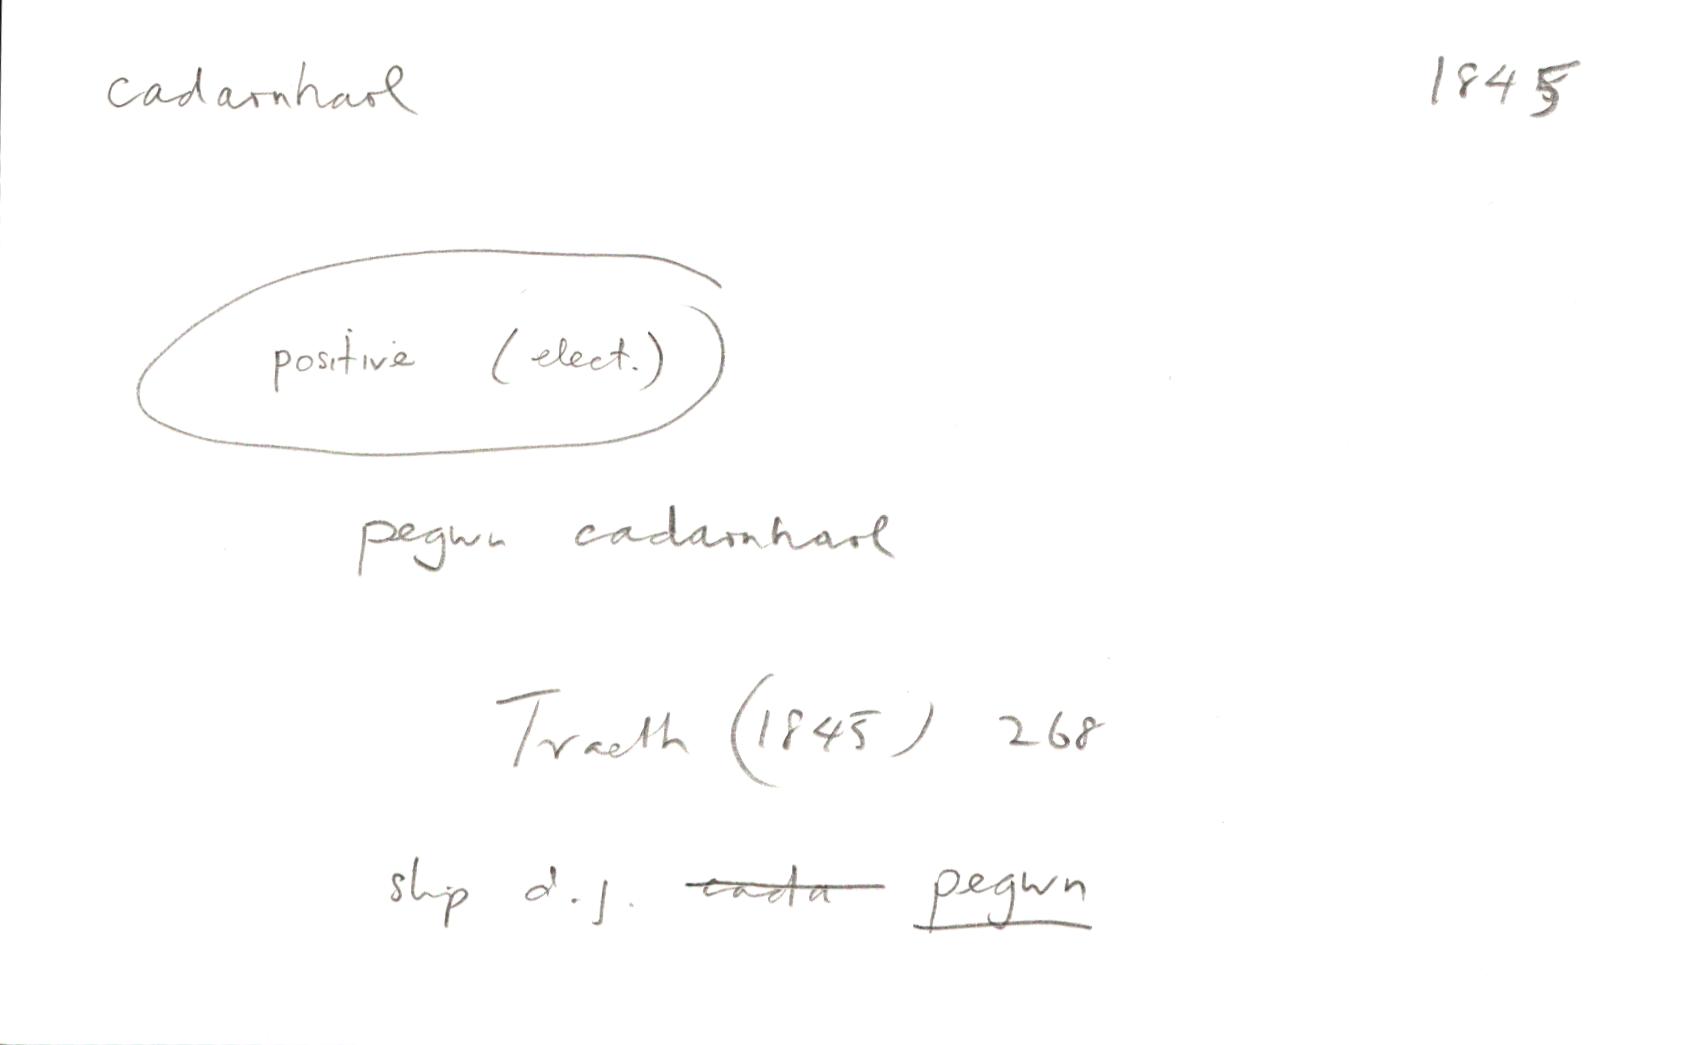 cadarnhaol 1845
positive (elect.)
pegwn cadarnhaol
Traeth (1845) 268
slip d.j. cada pegwn